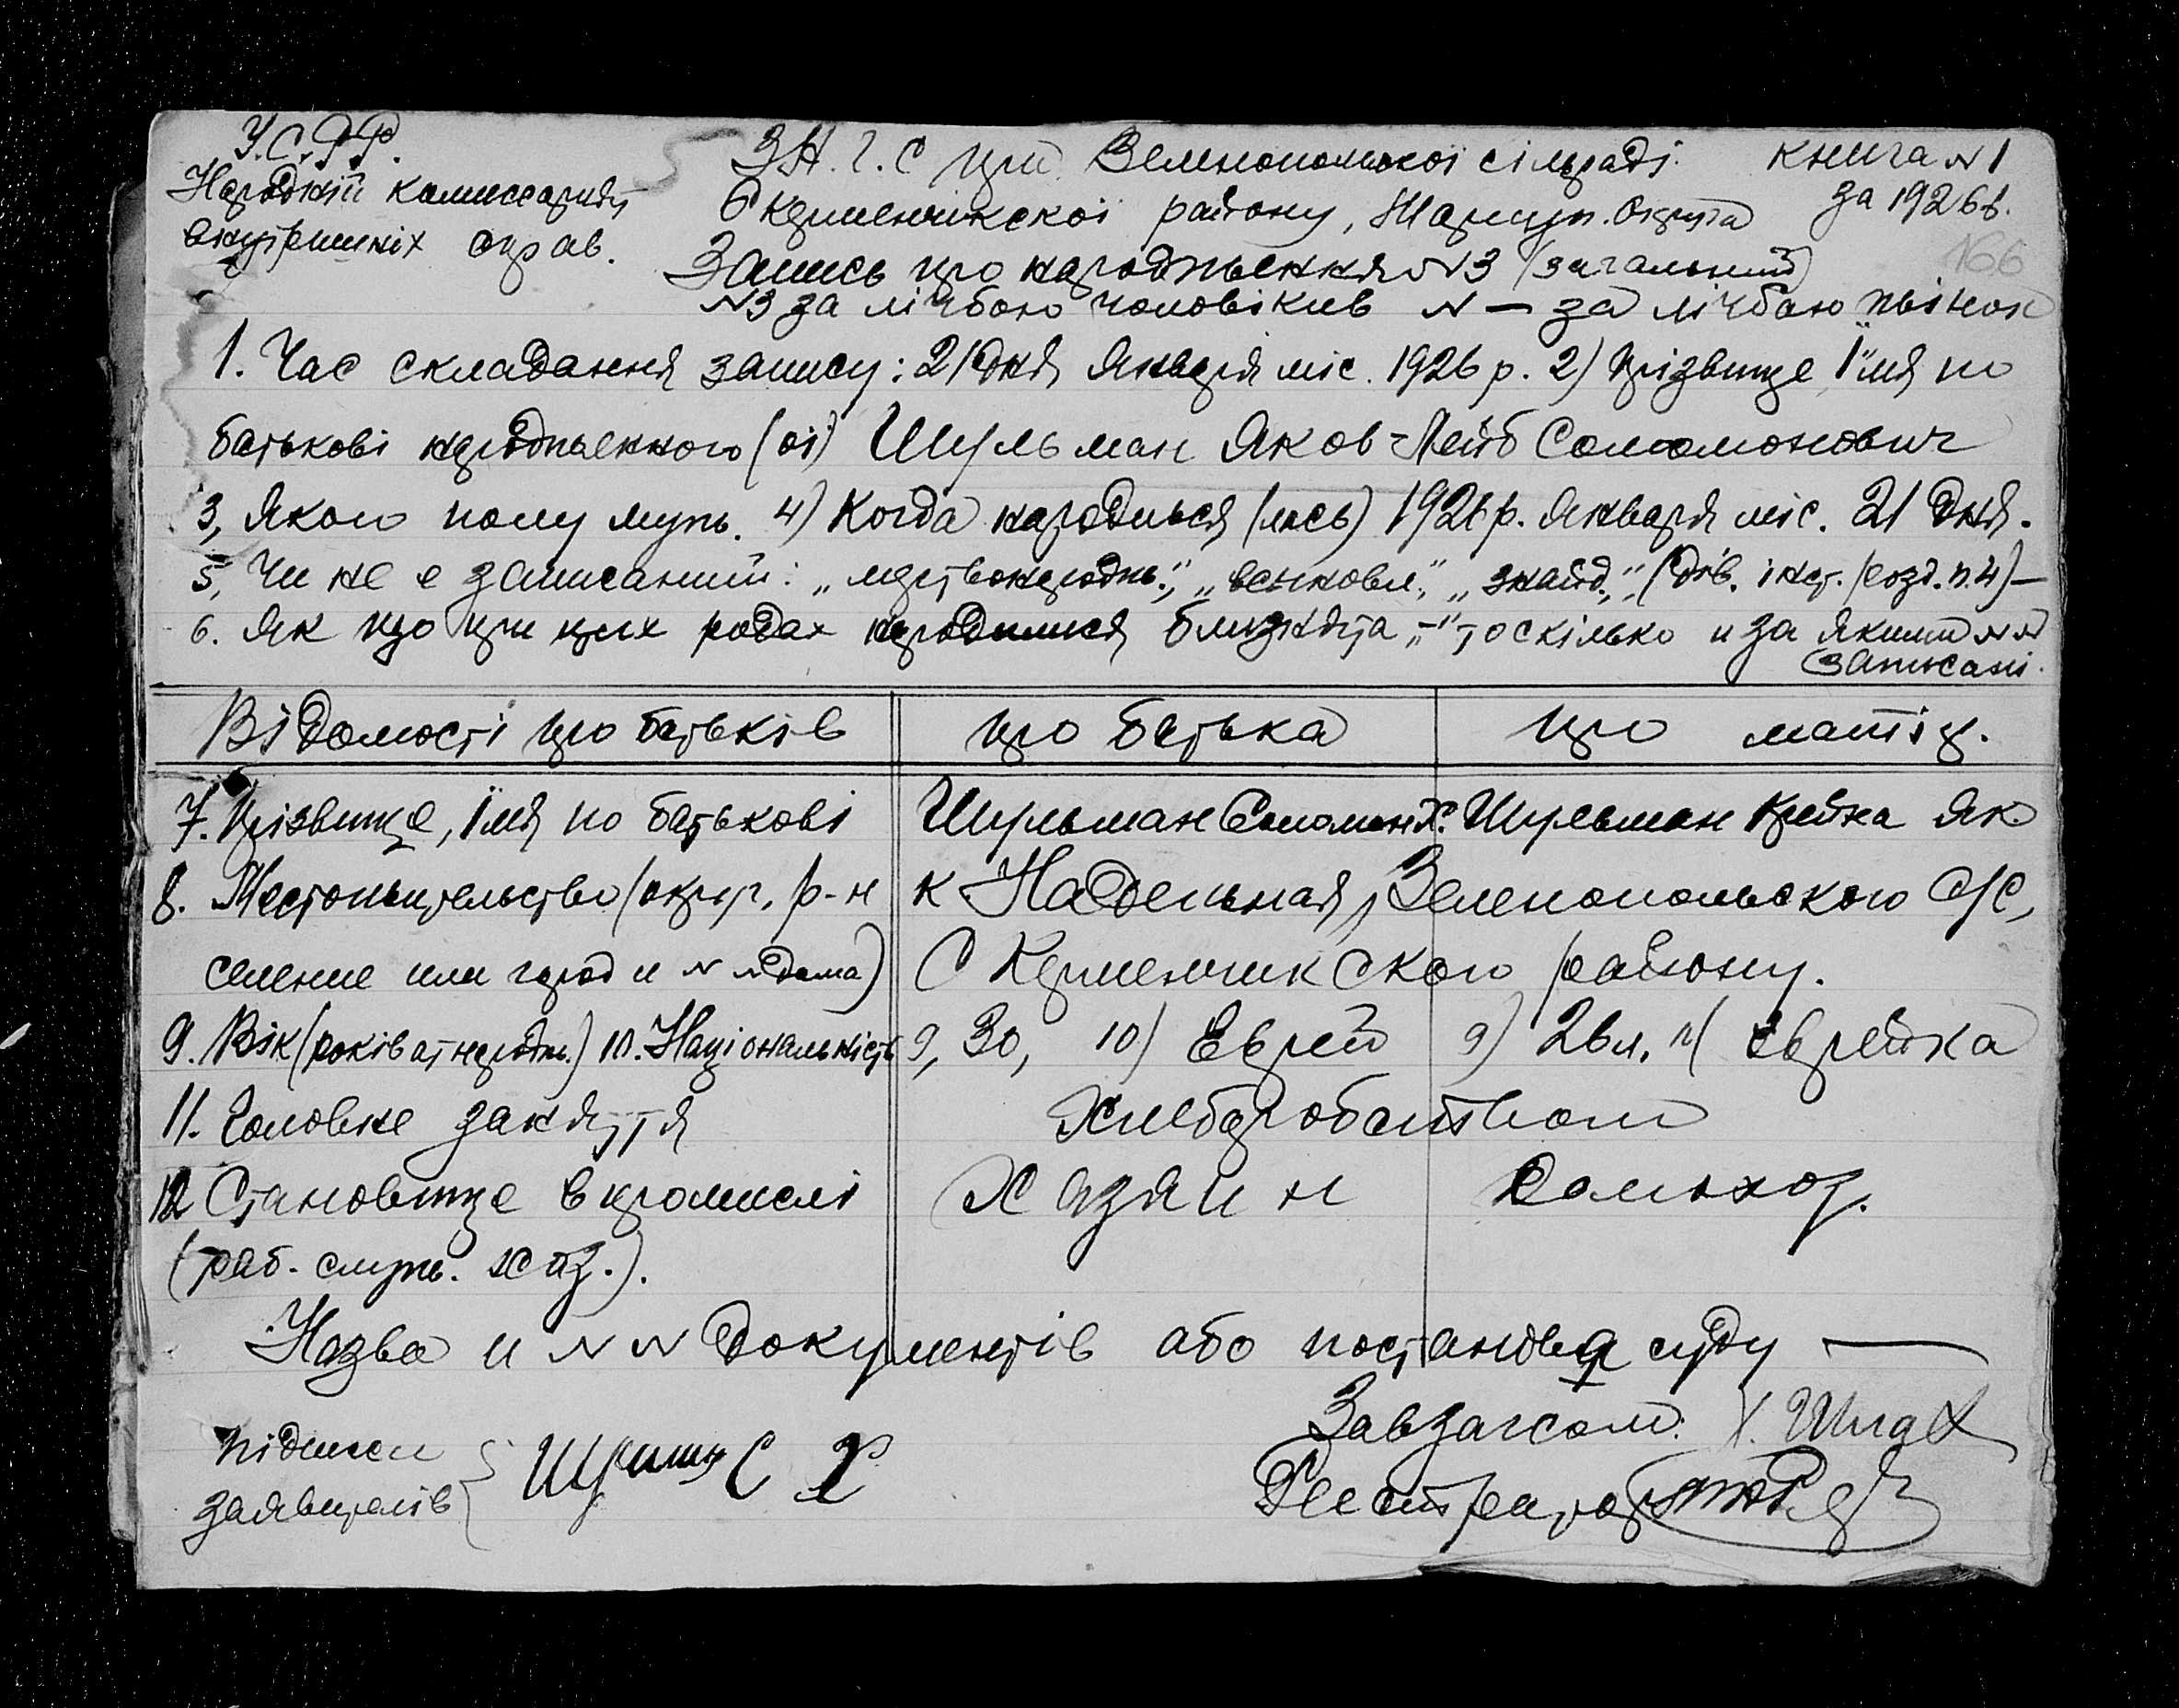 У.С.Р.Р.
Народній комиссаріят
внутрешніх справ.
З.А.Г.С при Зеленопольскоі сільраді.
Скерменчикскоі району, Мариуп. Округа
книга № 1
за 1926 г.
166
Запись про народження № 3 (загальний)
№ 3 за лічбою чоловіків № — за лічбаю жінок
1. Час складання запису: 21 дня Января міс. 1926 р. 2) Прізвище Їмя по
батькові народженного (оі) Шульман Яков-Лейб Соломонович
3, Якого полу муж. 4) Когда народився (лась) 1926 р. Января міс. 21 Дня.
5, Чи не е записаний: „мертвонароднж.", „ „знайд.", (див. інст. розд. п. 4) —
6. Як що при цих родах народилися близнята „—" то скілько и за якими №№
записані.
Відомості про батьків
про батька
про матіц.
7. Прізвище, Їмя по батькові
Шульман Соломон Х.
Шульман Крейна Як
8. Местожительство (округ, р-н
селение или город и №№ дома)
к Надельная, Зеленопольского С/С,
С Керменчикского району.
9. Вік (років ат народж.) 10. Національність
9, 30, 10) Еврей
9) 26 л. 10) Еврейка
11. Головне заняття
Хлебаробством
12 Становище в промислі
(раб. служ. хаз.).
Хазяин
Домохоз.
Назва и №№ документів або постанова суду —
підписи
заявителів
Шульман С Х
Завзагсом: Х. Шпак
Регистратор